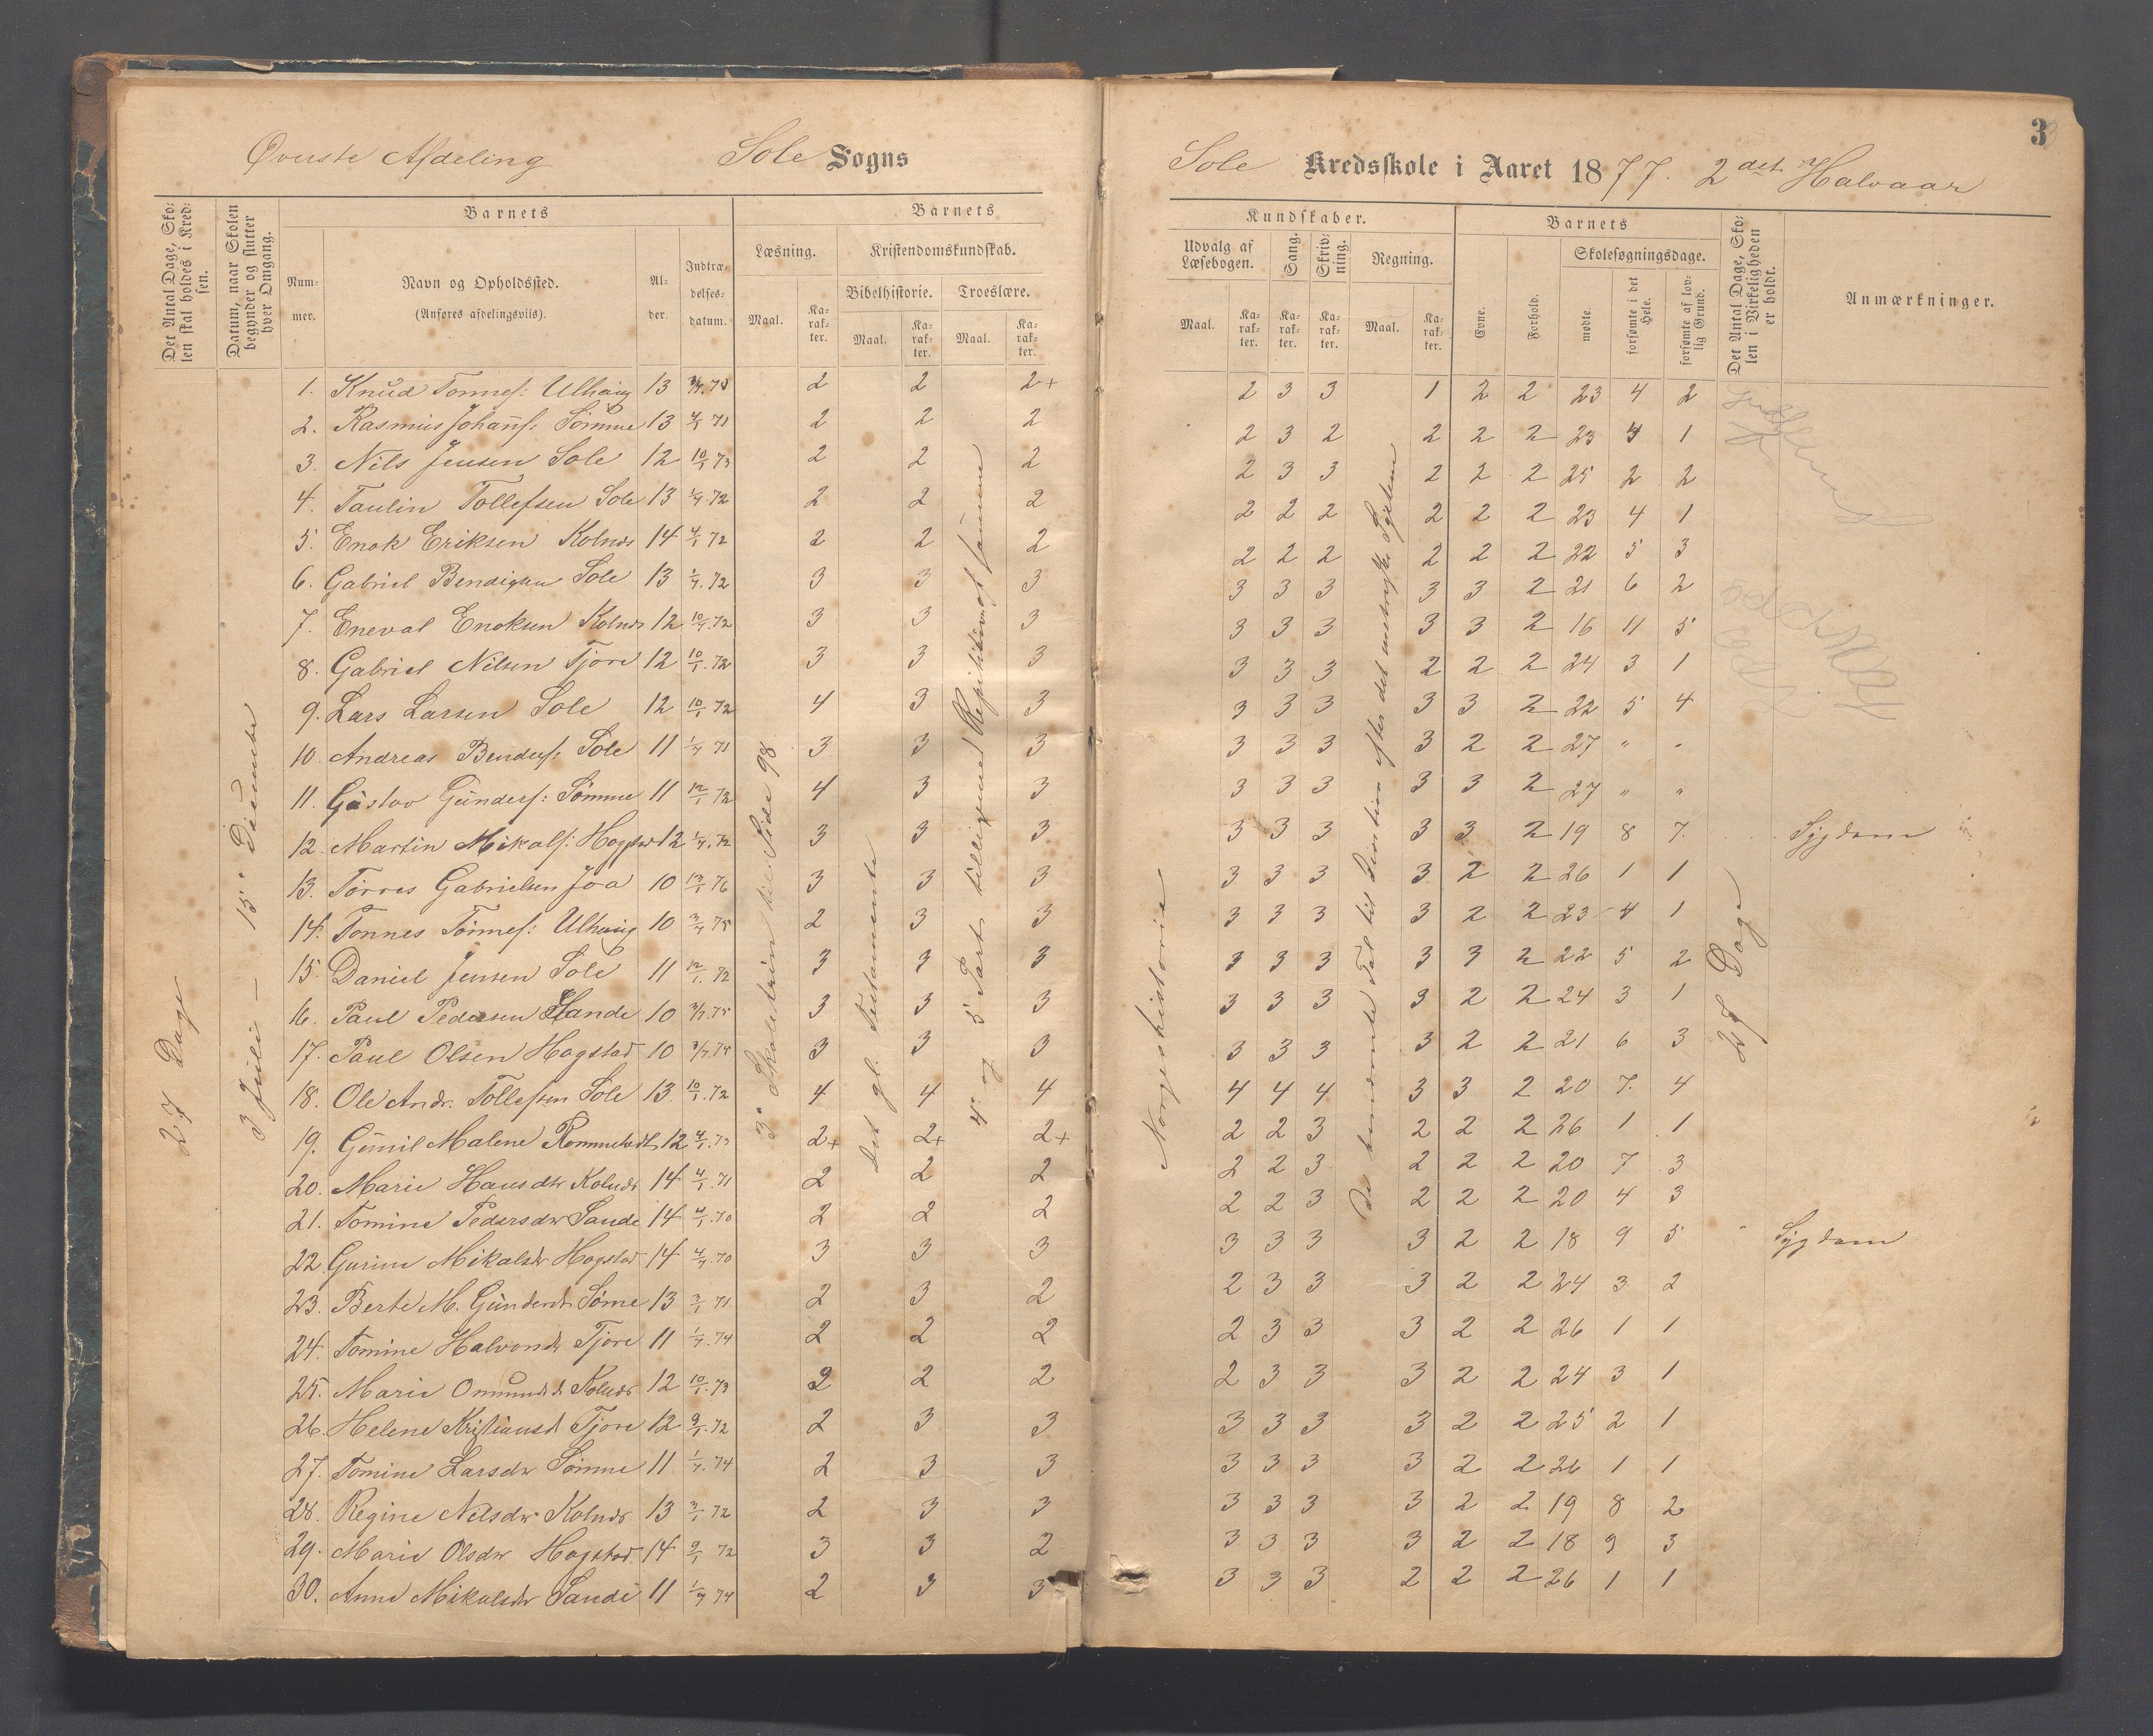 Øverste Afdeling Sole Sogns
Sole Kredsskole i Aaret 1877. 2det Halvaar
3
Det Antal Dage, Skolen skal holdes i Kredsen.
Datum, naar Skolen begynder og slutter hver Omgang.
Barnets
Nummer.
Navn og Opholdssted.
(Anføres afdelingsviis).
Alder.
Indtrædelsesdatum.
Barnets
Læsning.
Kristendomskundskab.
Bibelhistorie. Troeslære.
Maal. Karakter. Maal. Karakter. Maal. Karakter.
Kundskaber.
Udvalg af Læsebogen. Sang. Skrivning. Regning.
Maal. Karakter. Karakter. Karakter. Maal. Karakter.
Barnets
Evne. Forhold. Skolesøgningsdage.
mødte. forsømte i det Hele. forsømte af lovlig Grund.
Det Antal Dage, Skolen i Virkeligheden er holdt.
Anmærkninger.
27 Dage
3 Juli – 15de Décember
3die Skoletrin til Side 98
Det gl. Testamente
4de og 5te Part tilligemed Repitition af samme
Norgeshistorie
27 Dage
1. Knud Tønnes: Ulhaug 13 3/7.75 2 2 2+ 2 3 3 1 2 2 23 4 2
2. Rasmus Johans: Sømme 13 4/1 71 2 2 2 2 3 2 2 2 2 23 4 1
3. Nils Jensen Sole 12 10/1 73 2 2 2 2 3 3 2 2 2 25 2 2
4. Taulin Tollefsen Sole 13 1/7.72 2 2 2 2 2 2 2 2 2 23 4 1
5. Enok Eriksen Kolnes 14 4/1 72 2 2 2 2 2 2 2 2 2 22 5 3
6. Gabriel Bendigtsen Sole 13 1/7.72 3 3 3 3 3 3 3 3 2 21 6 2
7. Eneval Enoksen Kolnes 12 10/1.72 3 3 3 3 3 3 3 3 2 16 11 5
8. Gabriel Nilsen Tjore 12 10/1.72 3 3 3 3 3 3 2 2 2 24 3 1
9. Lars Larsen Sole 12 10/1.72 4 3 3 3 3 3 3 3 2 22 5 4
10. Andreas Bendics: Sole 11 1/7 71 3 3 3 3 3 3 3 2 2 27 " "
11. Gustav Gunders: Sømme 11 12/1 72 4 3 3 3 3 3 3 3 2 27 " "
12. Martin Mikals: Hogstad 12 1/7.72 3 3 3 3 3 3 3 3 2 19 8 7. Sygdom
13. Tørres Gabrielsen Joa 10 13/1 76 3 3 3 3 3 3 3 2 2 26 1 1
14. Tønnes Tønnes: Ulhaug 10 3/7 75 2 3 3 3 3 3 3 2 2 23 4 1
15. Daniel Jensen Sole 11 12/1.72 3 3 3 3 3 3 3 3 2 22 5 2
16. Paul Pedersen Sande 10 3/7.75 3 3 3 3 3 3 3 2 2 24 3 1
17. Paul Olsen Hogstad 10 3/7.75 3 3 3 3 3 3 3 2 2 21 6 3
18. Ole Andr. Tollefsen Sole 13 10/1.72 4 4 4 4 4 4 3 3 2 20 7. 4
19. Gunil Malene Rommetvedt 12 4/1.73 2+ 2+ 2+ 2 2 3 2 2 2 26 1 1
20. Marie Hansdtr Kolnes 14 4/1.71 2 2 2 2 2 3 2 2 2 20 7 3
21. Tomine Pedersdtr Sande 14 4/1.70 2 2 2 2 2 3 2 2 2 20 4 3
22. Gurine Mikalsdr Hogstad 14 4/7.70 3 3 3 3 3 3 3 2 2 18 9 5 Sygdom
23. Berte M. Gundersdr Sømme 13 3/1 71 2 3 2 2 3 3 3 2 2 24 3 2
24. Tomine Halvorsdr Tjore 11 1/7.74 2 2 2 2 3 3 3 2 2 26 1 1
25. Marie Omundsd. Kolnes 12 10/1.73 2 2 2 2 3 3 3 2 2 24 3 1
26. Helene Kristiansd Tjore 12 9/1.72 2 3 3 3 3 3 3 2 2 25 2 1
27. Tomine Larsdr Sømme 11 1/7.74 2 3 3 3 3 3 3 2 2 26 1 1
28. Regine Nilsdr Kolnes 13 3/1 72 2 3 3 3 3 3 3 2 2 19 8 2
29. Marie Olsdr Hogstad 14 9/1 72 3 3 2 3 3 3 3 2 2 18 9 3
30. Anne Mikalsdr Sande 11 1/7 74 2 3 3 3 3 3 2 2 2 26 1 1